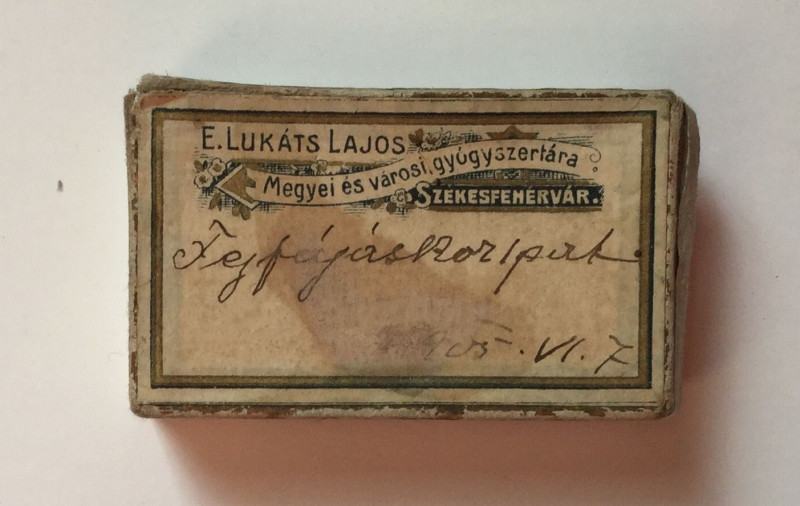 E. LUKÁTS LAJOS
Megyei és városi gyógyszertára
SZÉKESFEHÉRVÁR.
Fejfájáskor 1 port.
1905. VI. 7